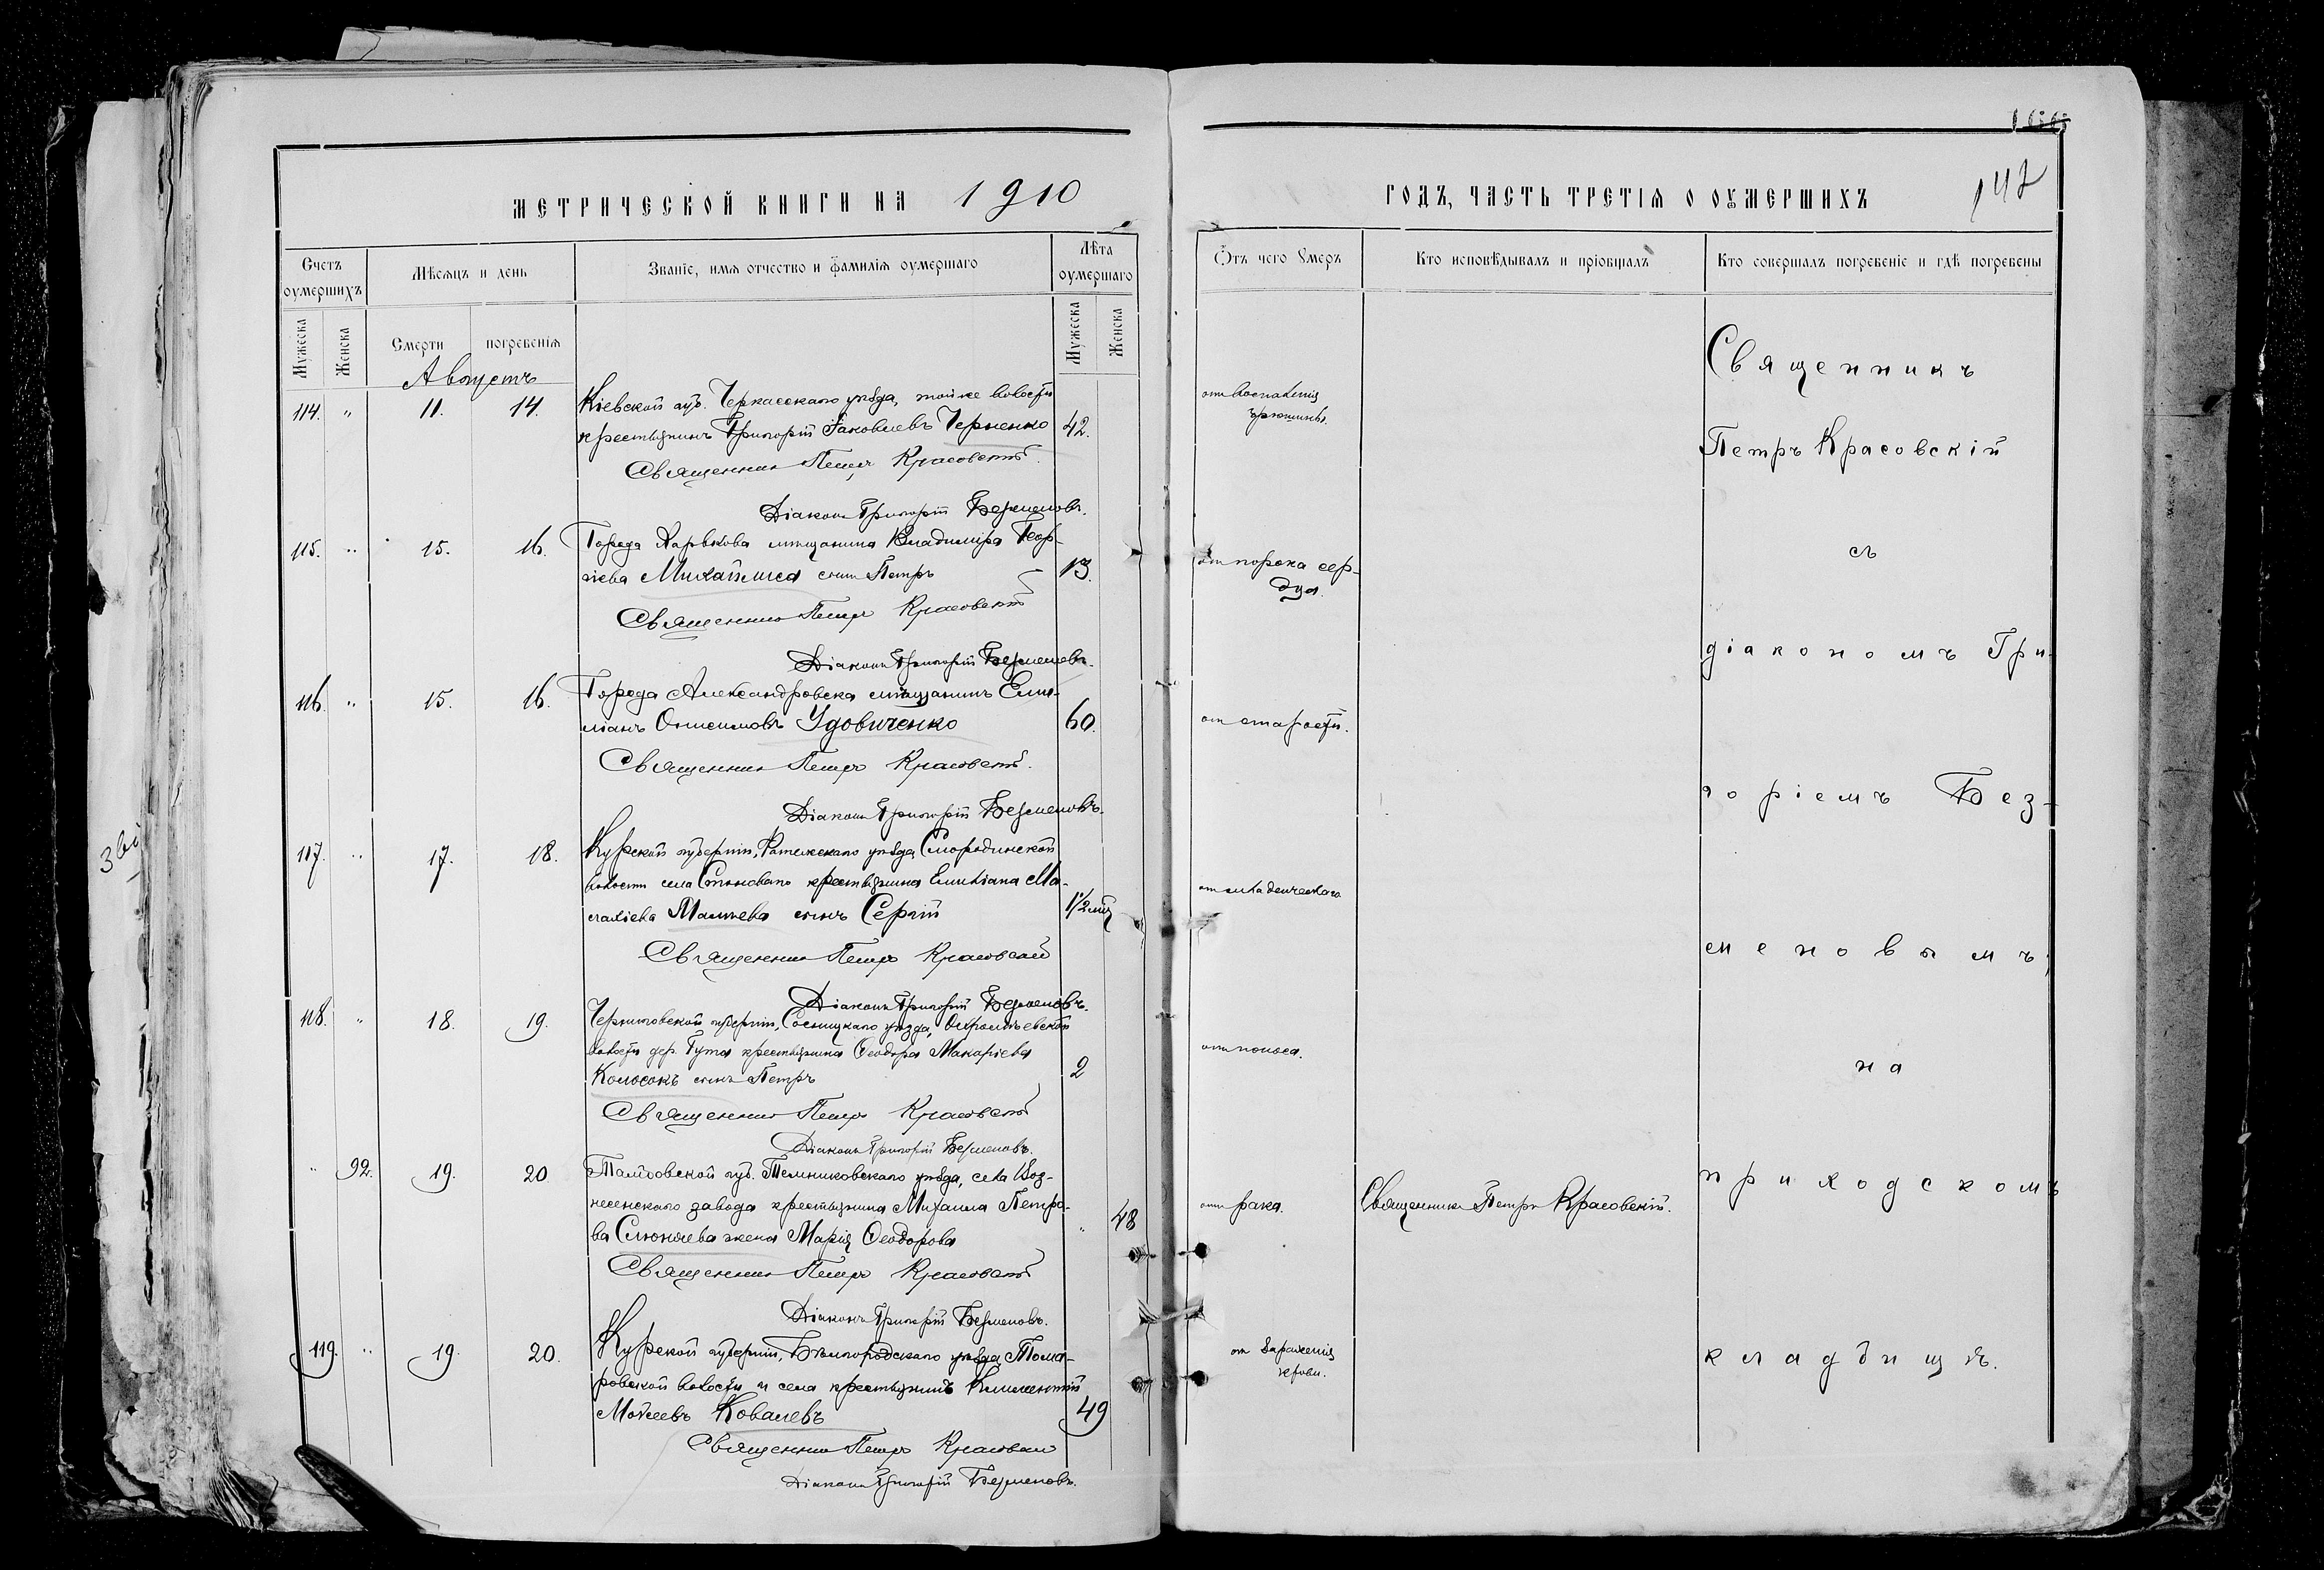 МЕТРИЧЕСКОЙ КНИГИ НА 1910
Счетъ оумершихъ
Мѣсяцъ и день
Званіе, имя отчество и фамилія оумершаго
Лѣта оумершаго
Мужеска
Женска
Смерти
погребенія
Мужеска
Женска
Августъ
114. " 11. 14. Кіевской губ. Черкасскаго уѣзда, той же волости
крестьянинъ Григорій Іаковлевъ Черненко 42.
Священникъ Петръ Красовскій.
Діаконъ Григорій Безменовъ.
115. " 15. 16. Города Харькова мѣщанина Владиміра Геор-
гіева Михайлиса сынъ Петръ 13.
Священникъ Петръ Красовскій
Діаконъ Григорій Безменовъ.
116. " 15. 16. Города Александровска мѣщанинъ Еми-
ліанъ Онисимовъ Удовиченко 60.
Священникъ Петръ Красовскій.
Діаконъ Григорій Безменовъ.
117. " 17. 18. Курской губерніи, Фатежскаго уѣзда, Смородинской
волости села крестьянина Емиліана Ма-
лахіева Мальева сынъ Сергій 1½ мѣс
Священникъ Петръ Красовскій
Діаконъ Григорій Безменовъ.
118. " 18. 19. Черниговской губерніи, Сосницкаго уѣзда,
волости дер. Гута крестьянина Ѳеодора Макаріева
Колосокъ сынъ Петръ 2
Священникъ Петръ Красовскій
Діаконъ Григорій Безменовъ.
" 92. 19. 20. Тамбовской губ. Темниковскаго уѣзда, села Воз-
несенскаго завода крестьянина Михаила Петро-
ва Слюняева жена Марія Ѳеодорова " 48
Священникъ Петръ Красовскій
Діаконъ Григорій Безменовъ.
119. " 19. 20. Курской губерніи, Бѣлгородскаго уѣзда Тома-
ровской волости и села крестьянинъ Климентій
Моѵсеевъ Ковалевъ 49
Священникъ Петръ Красовскій
Діаконъ Григорій Безменовъ.
166
147
ГОДЪ, ЧАСТЬ ТРЕТІЯ О ОУМЕРШИХЪ
Отъ чего Умеръ
Кто исповѣдывалъ и пріобщалъ
Кто совершалъ погребеніе и гдѣ погребены
отъ воспаленія
брюшины.
отъ порока сер-
дца.
отъ старости.
отъ младенческаго
отъ поноса.
отъ рака.
Священникъ Петръ Красовскій.
от зараженія
крови.
Священникъ
Петръ Красовскій
съ
діакономъ Гри-
горіемъ Без-
меновымъ,
на
приходскомъ
кладбищѣ.